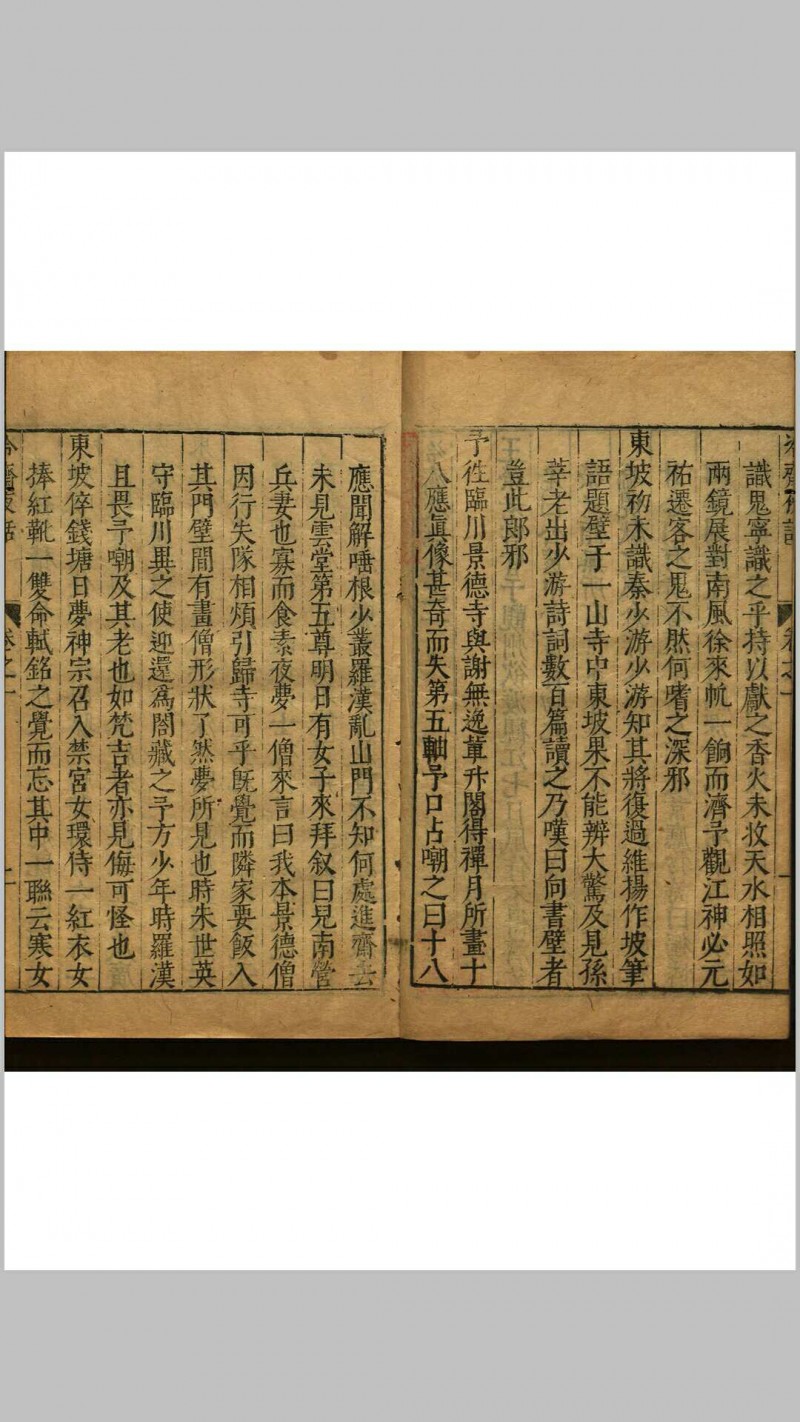 識鬼寧識之乎持以獻之香火未收天水相照如
兩鏡展對南風徐來㠶一餉而濟予觀江神必元
祐遷客之鬼不然何嗜之深邪
東坡初未識秦少游少游知其將復過維揚作坡筆
語題壁于一山寺中東坡果不能辨大驚及見孫
莘老出少游詩詞數百篇讀之乃嘆曰向書壁者
豈此郎邪
予徃臨川景德寺與謝無逸軰升閣得禪月所畫十
八應眞像甚奇而失第五軸予口占嘲之曰十八
應聞解𡄒根少叢羅漢亂山門不知何處進齋去
未見雲堂第五尊明日有女子來拜叙曰兒南營
兵妻也寡而食素夜夢一僧來言曰我本景德僧
因行失隊相煩引歸寺可乎旣覺而隣家要飯入
其門壁間有畫僧形狀了然夢所見也時朱世英
守臨川異之使迎還爲閣藏之予方少年時羅漢
且畏予嘲及其老也如梵吉者亦見侮可怪也
東坡倅錢塘日夢神宗召入禁宮女環侍一紅衣女
捧紅靴一雙命軾銘之覺而忘其中一聯云寒女